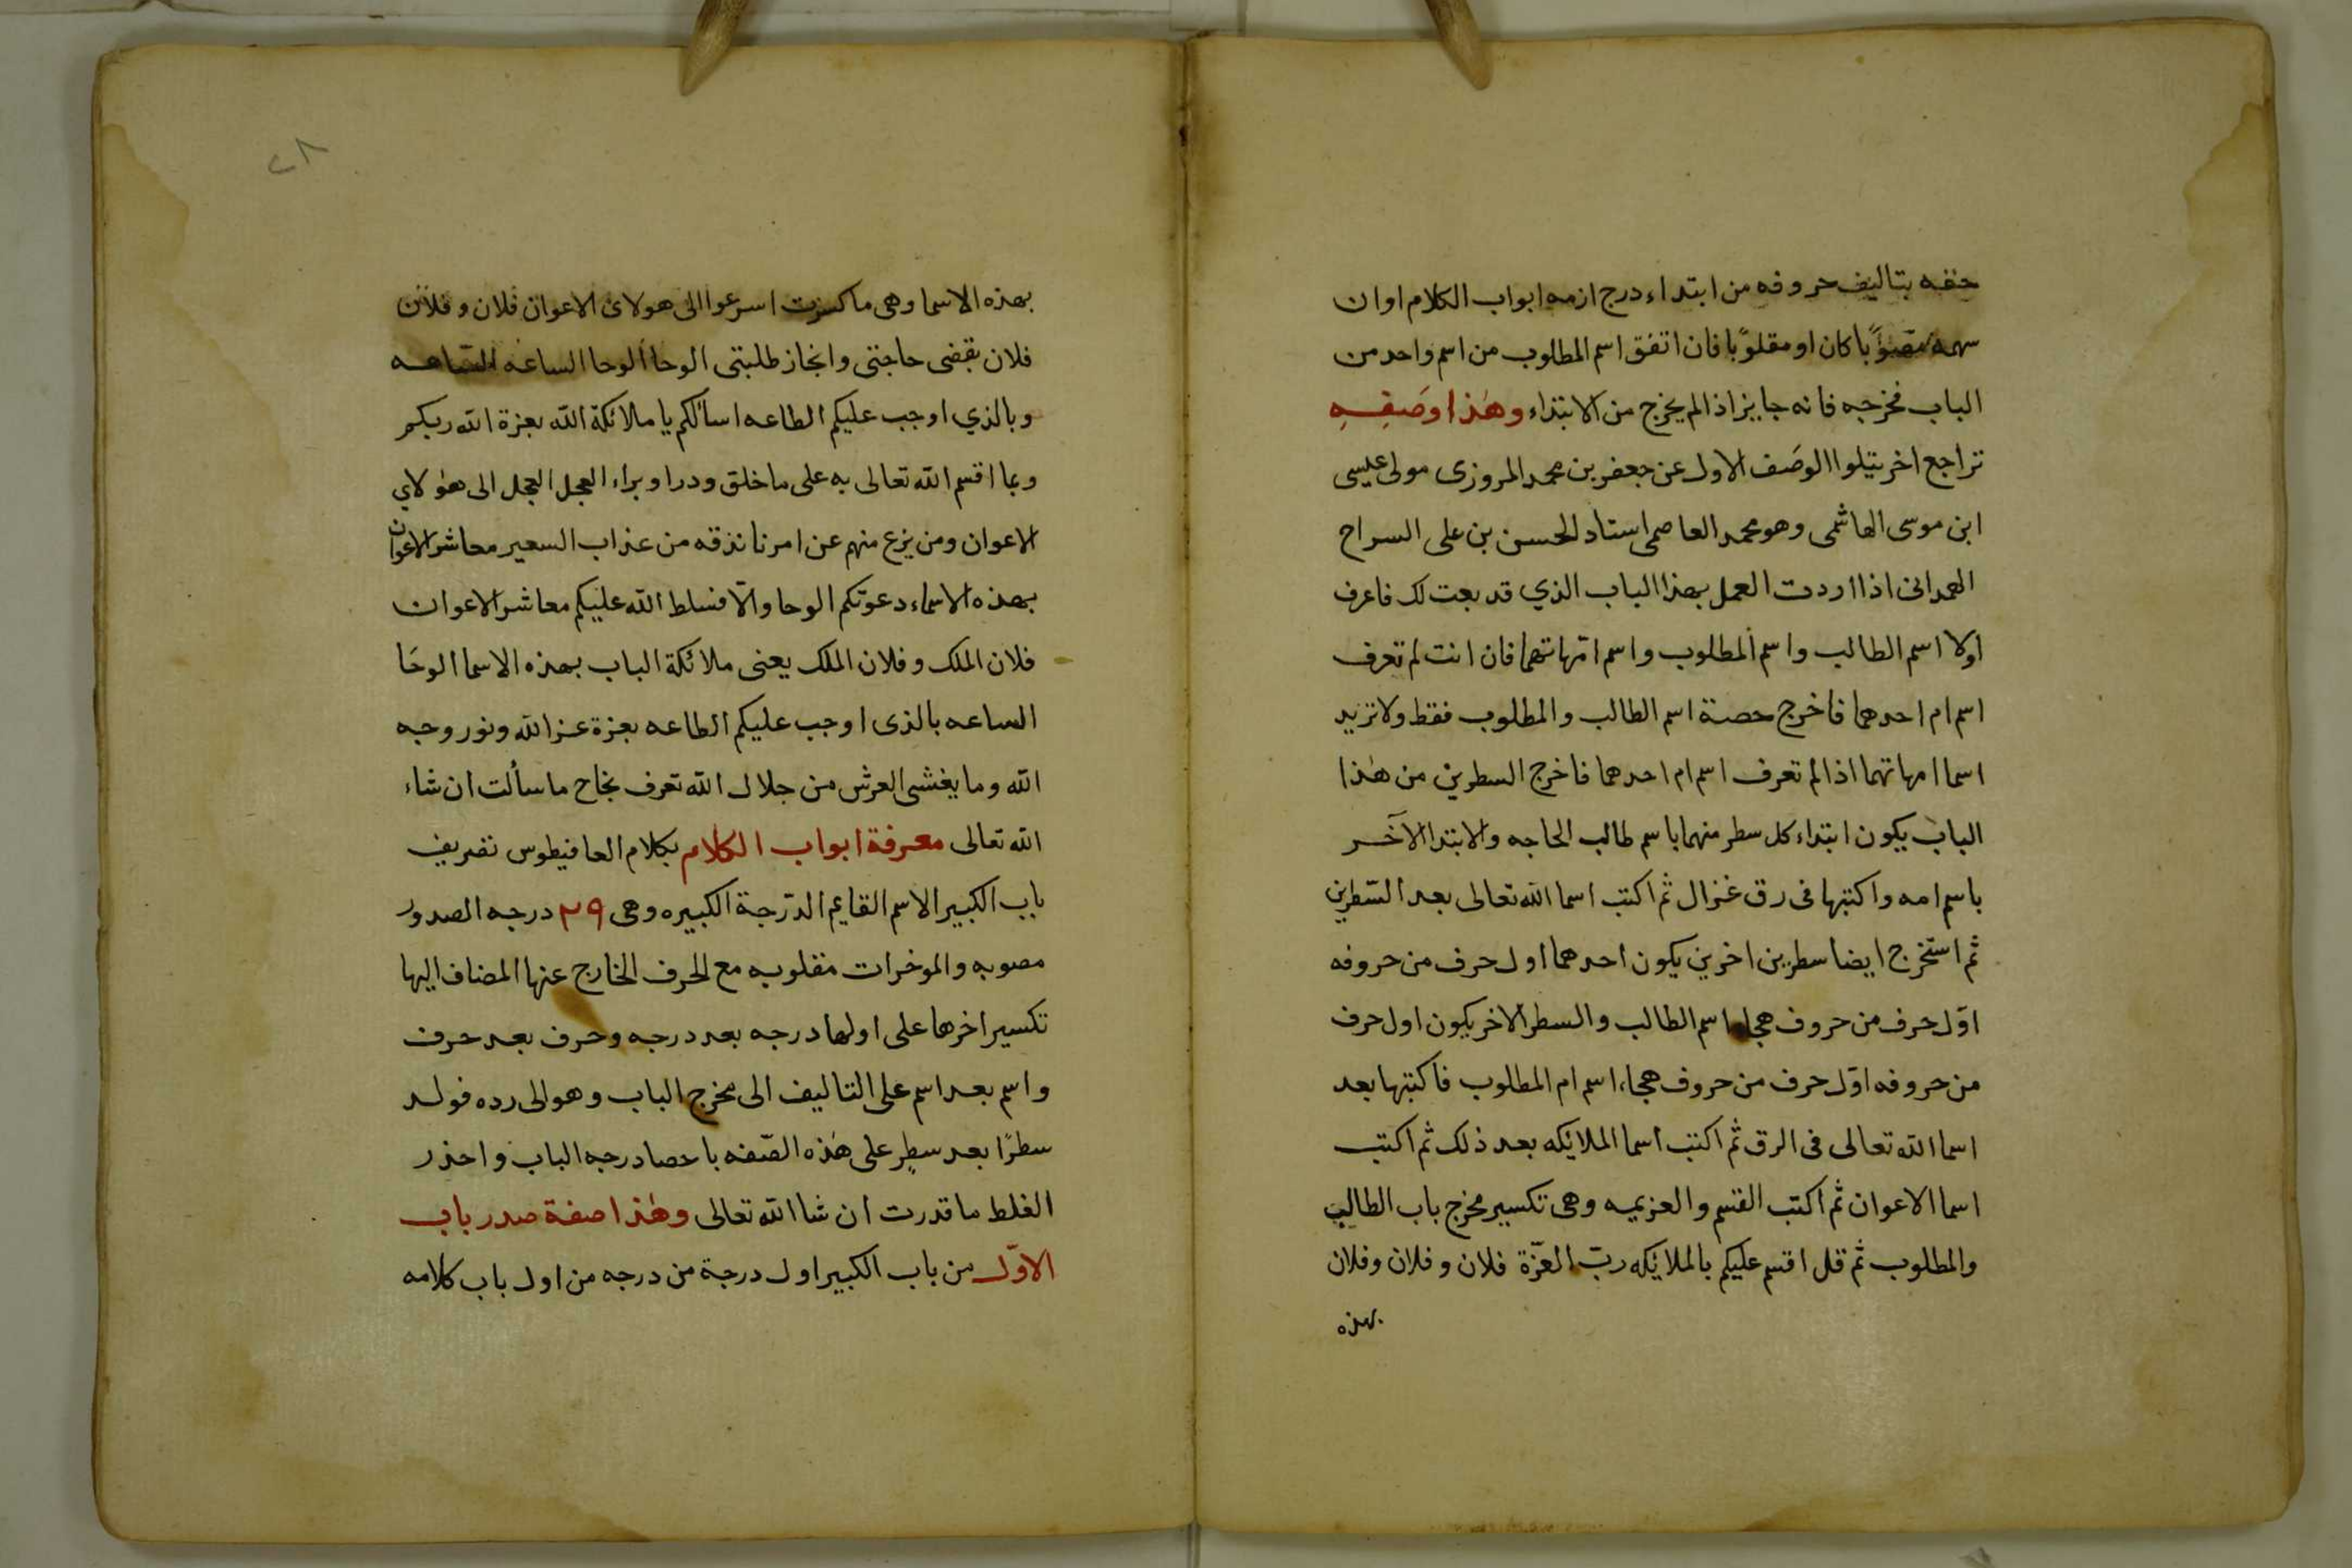 حفه بتاليف حروفه من ابتداء درج ازمه ابواب الكلام او ان
سهمه مصوبًا كان او مقلوبًا فان اتفق اسم المطلوب من اسم واحد من
الباب فخرجه فانه جايز اذا لم يخرج من الابتداء وهذا وصَفِهِ
تراجع اخر يتلوا الوصف الاول عن جعفر بن محمد المروزى مولى عيسى
ابن موسى الهاشمى وهو محمد العاصمى استاد الحسن بن على السراج
الهمدانى اذا اردت العمل بهذا الباب الذي قد بعت لك فاعرف
اولا اسم الطالب واسم المطلوب واسم امّهاتهما فان انت لم تعرف
اسم ام احدهما فاخرج حصة اسم الطالب والمطلوب فقط ولا تزيد
اسما امهاتهما اذا لم تعرف اسم ام احدهما فاخرج السطرين من هذا
الباب يكون ابتداء كل سطر منهما باسم طالب الحاجه والابتدا الآخر
باسم امه واكتبها فى رق غزال ثم اكتب اسما الله تعالى بعد السّطرين
ثم استخرج ايضا سطرين اخرين يكون احدهما اول حرف من حروفه
اوّل حرف من حروف هجاء اسم الطالب والسطر الاخر يكون اول حرف
من حروفه اوّل حرف من حروف هجاء اسم ام المطلوب فاكتبها بعد
اسما الله تعالى فى الرق ثم اكتب اسما الملايكه بعد ذلك ثم اكتب
اسما الاعوان ثم اكتب القسم والعزيمه وهى تكسير مخرج باب الطالب
والمطلوب ثم قل اقسم عليكم بالملايكه ربّ العزّة فلان وفلان وفلان
بهذه
٢٨
بهذه الاسما وهى ما كسرت اسرعوا الى هولاى الاعوان فلان وفلان
فلان بقضى حاجتى وانجاز طلبتى الوحا الوحا الساعه السّاعه
وبالذي اوجب عليكم الطاعه اسألكم يا ملائكة الله بعزة الله ربكم
وبما اقسم الله تعالى به على ما خلق ودرا وبراء العجل العجل الى هولاي
الاعوان ومن يزع منهم عن امرنا نذقه من عذاب السعير معاشر الاعوان
بهذه الاسماء دعوتكم الوحا والّا فسلط الله عليكم معاشر الاعوان
فلان الملك وفلان الملك يعنى ملائكة الباب بهذه الاسما الوحَا
الساعه بالذى اوجب عليكم الطاعه بعزة عز الله ونور وجه
الله وما يغشى العرش من جلال الله تعرف نجاح ما سألت ان شاء
الله تعالى معرفة ابواب الكلام بكلام العافيطوس تصريف
باب الكبير الاسم القايم الدّرجة الكبيره وهى ٢٩ درجه الصدور
مصوبه والموخرات مقلوبه مع الحرف الخارج عنها المضاف اليها
تكسير اخرها على اولها درجه بعد درجه وحرف بعد حرف
واسم بعد اسم على التاليف الى مخرج الباب وهو الى رده فولد
سطرًا بعد سطرٍ على هذه الصّفه باحصا درجه الباب واحذر
الغلط ما قدرت ان شا الله تعالى وهذا صفة صدر باب
الاوّل من باب الكبير اول درجة من درجه من اول باب كلامه